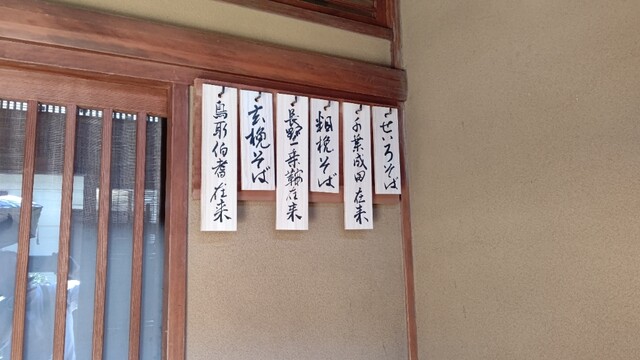 せいろそば
千葉成田在来
粗挽そば
長野一乗鞍在来
玄挽そば
鳥取伯耆在来